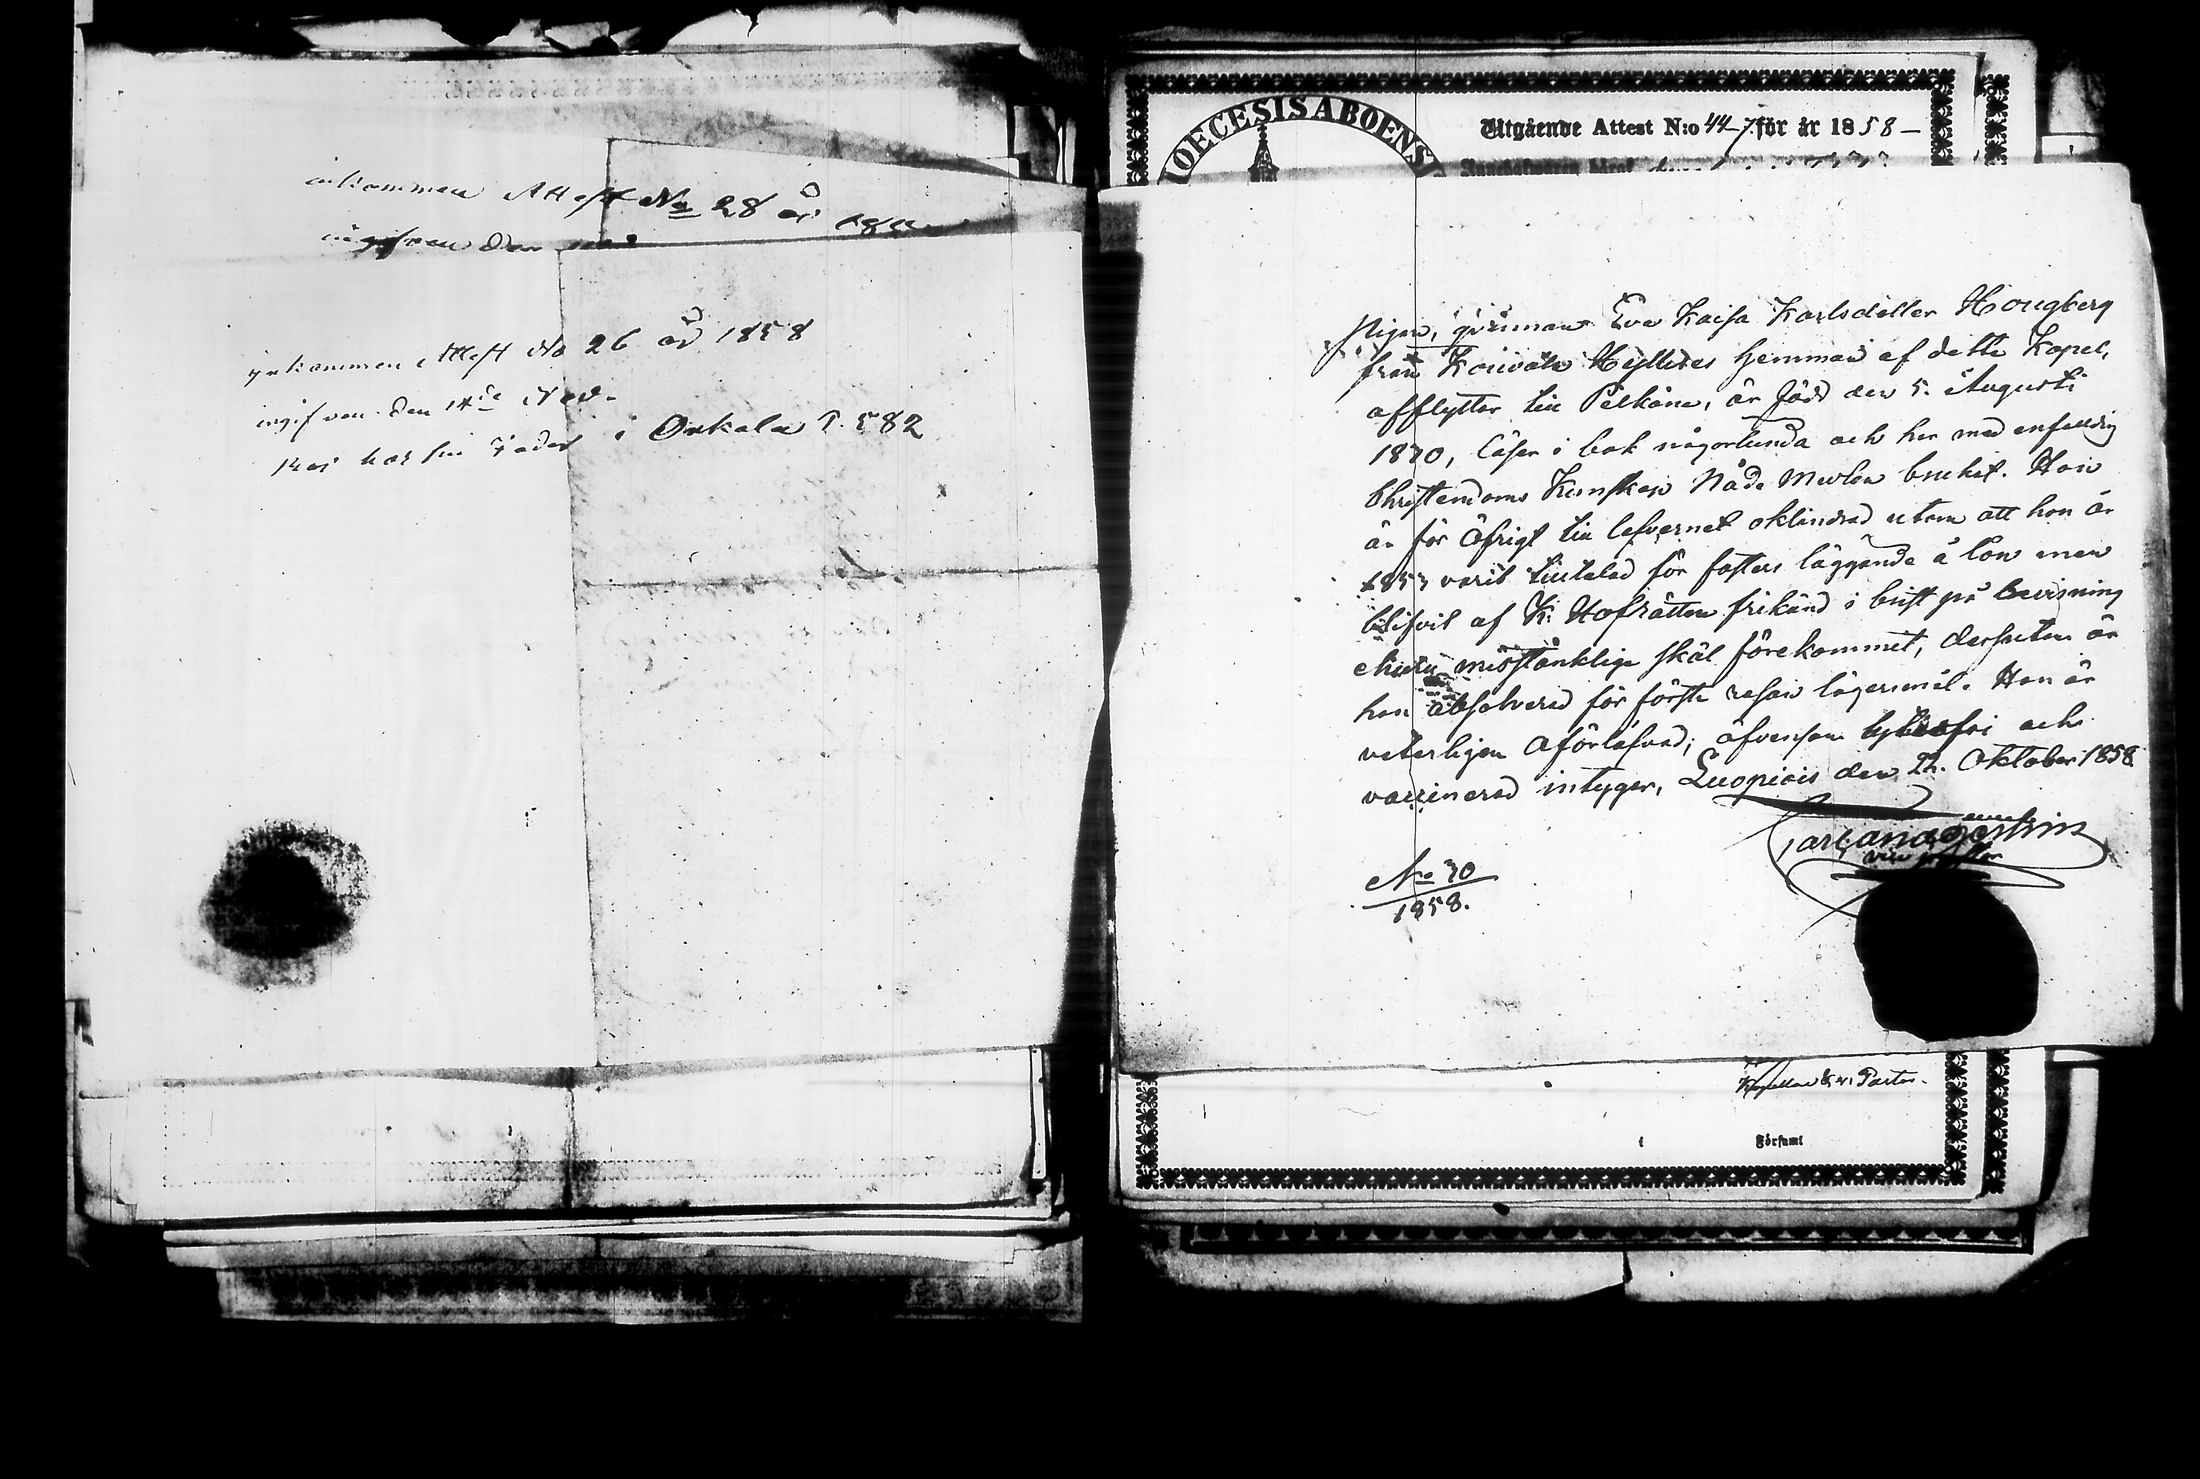 inkommen Attest No 28 år
ingifven den
inkommen Attest No 26 år 1858
ingifven den 14de Nov.
har sin Fader i Onkala P. 582
DIOECESIS ABOENSIS
Utgående Attest N:o 44 för år 1858 –
Pigan, qvinnan Eva Kaisa Karlsdotter Hougberg
från Kouvala hemman af detta Kapel,
afflyttar till Pelkäne, är född den 5. Augusti
1820, läser i bok någorlunda och har med enfaldig
Christendoms Kunskap Nådemedlen brukat. Hon
är för öfrigt till lefvernet oklandrad utom att hon år
1853 varit tilltalad för fosters läggande å lön men
blifvit af K. Hofrätten frikänd i brist på bevisning
ehuru misstänklige skäl förekommit, dessutom är
hon absolverad för första resan lägersmål. Hon är
veterligen oförlofvad, äfvensom lyttesfri och
vaccinerad intygar, Luopiois den 22. Oktober 1858
Carl
vice pastor
No 70
1858.
Kapellan & v. Pastor.
i Församl